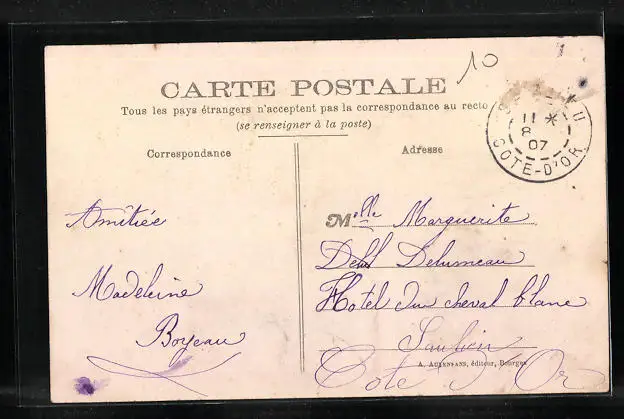 10
CARTE POSTALE
Tous les pays étrangers n'acceptent pas la correspondance au recto
(se renseigner à la poste)
11 *
8
07
COTE-D'OR
Correspondance
Adresse
Amitiée
Madeleine
Boyeau
Melle Marguerite
Delumeau
Hotel du cheval blanc
Saulieu
A. AUXENFANS, éditeur, Bourges
Cote d'Or